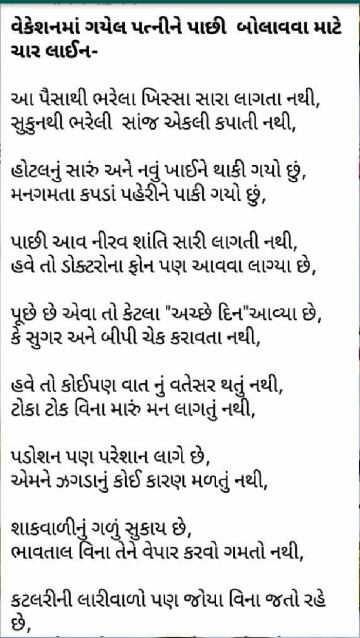 વેકેશનમાં ગયેલ પત્નીને પાછી બોલાવવા માટે
ચાર લાઈન-
આ પૈસાથી ભરેલા ખિસ્સા સારા લાગતા નથી,
સુકુનથી ભરેલી સાંજ એકલી કપાતી નથી,
હોટલનું સારું અને નવું ખાઈને થાકી ગયો છું,
મનગમતા કપડાં પહેરીને પાકી ગયો છું,
પાછી આવ નીરવ શાંતિ સારી લાગતી નથી,
હવે તો ડોક્ટરોના ફોન પણ આવવા લાગ્યા છે,
પૂછે છે એવા તો કેટલા "અચ્છે દિન"આવ્યા છે,
કે સુગર અને બીપી ચેક કરાવતા નથી,
હવે તો કોઈપણ વાત નું વતેસર થતું નથી,
ટોકા ટોક વિના મારું મન લાગતું નથી,
પડોશન પણ પરેશાન લાગે છે,
એમને ઝગડાનું કોઈ કારણ મળતું નથી,
શાકવાળીનું ગળું સુકાય છે,
ભાવતાલ વિના તેને વેપાર કરવો ગમતો નથી,
કટલરીની લારીવાળો પણ જોયા વિના જતો રહે
છે,